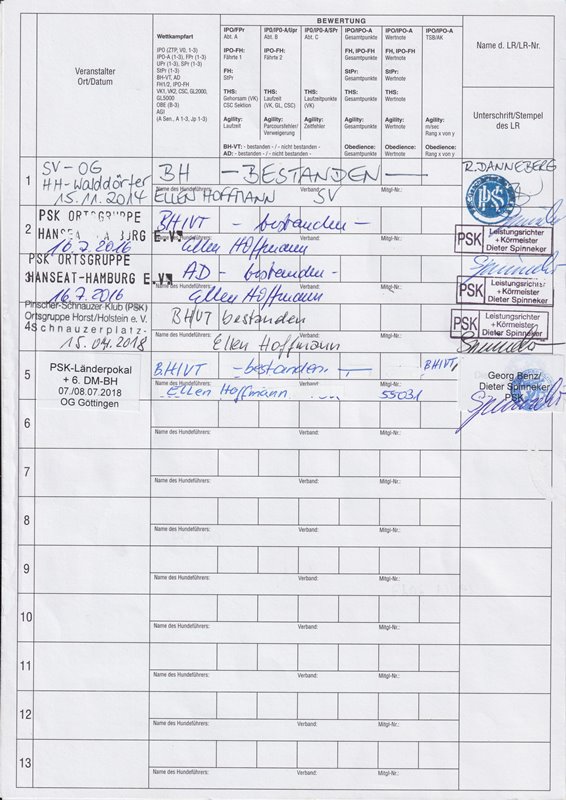 BEWERTUNG
Veranstalter
Ort/Datum
Wettkampfart
IPO (ZTP, V0, 1-3)
IPO-A (1-3), FPr (1-3)
UPr (1-3), SPr (1-3)
StPr (1-3)
BH-VT, AD
FH1/2, IPO-FH
VK1, VK2, CSC, GL2000,
GL5000
OBE (B-3)
AGI
(A Sen., A 1-3, Jp 1-3)
IPO/FPr
Abt. A
IPO-FH:
Fährte 1
FH:
StPr
THS:
Gehorsam (VK)
CSC Sektion
Agility:
Laufzeit
IPO/IPO-A/Upr
Abt. B
IPO-FH:
Fährte 2
THS:
Laufzeit
(VK, GL, CSC)
Agility:
Parcoursfehler/
Verweigerung
IPO/IPO-A/SPr
Abt. C
THS:
Laufzeitpunkte
(VK)
Agility:
Zeitfehler
IPO/IPO-A
Gesamtpunkte
FH, IPO-FH
Gesamtpunkte
StPr:
Gesamtpunkte
THS:
Gesamtpunkte
Agility:
Gesamtfehler
Obedience:
Gesamtpunkte
IPO/IPO-A
Wertnote
FH, IPO-FH
Wertnote
StPr:
Wertnote
THS:
Wertnote
Agility:
Wertnote
Obedience:
Wertnote
IPO/IPO-A
TSB/AK
Agility:
m/sec
Rang x von y
Obedience:
Rang x von y
BH-VT: - bestanden - / - nicht bestanden -
AD: - bestanden - / - nicht bestanden -
Name d. LR/LR-Nr.
Unterschrift/Stempel
des LR
1
SV-OG
HH-Walddörfer
15.11.2014
BH - BESTANDEN -
Name des Hundeführers: Verband: Mitgl-Nr.:
ELLEN HOFFMANN SV
R. DANNEBERG
2
PSK ORTSGRUPPE
HANSEAT-HAMBURG E.V.
16.7.2016
BH/VT - bestanden -
Name des Hundeführers: Verband: Mitgl-Nr.:
Ellen Hoffmann
PSK
Leistungsrichter
+ Körmeister
Dieter Spinneker
PSK ORTSGRUPPE
HANSEAT-HAMBURG E.V.
16.7.2016
AD - bestanden -
Name des Hundeführers: Verband: Mitgl-Nr.:
Ellen Hoffmann
PSK
Leistungsrichter
+ Körmeister
Dieter Spinneker
Pinscher-Schnauzer-Klub (PSK)
Ortsgruppe Horst/Holstein e. V.
4
Schnauzerplatz-
15.04.2018
BHVT bestanden
Name des Hundeführers: Verband: Mitgl-Nr.:
Ellen Hoffmann
PSK
Leistungsrichter
+ Körmeister
Dieter Spinneker
5
PSK-Länderpokal
+ 6. DM-BH
07./08.07.2018
OG Göttingen
BH/VT - bestanden - BH/VT
Name des Hundeführers: Verband: Mitgl-Nr.:
Ellen Hoffmann 55031
Georg Benz/
Dieter Spinneker
PSK
6
Name des Hundeführers: Verband: Mitgl-Nr.:
7
Name des Hundeführers: Verband: Mitgl-Nr.:
8
Name des Hundeführers: Verband: Mitgl-Nr.:
9
Name des Hundeführers: Verband: Mitgl-Nr.:
10
Name des Hundeführers: Verband: Mitgl-Nr.:
11
Name des Hundeführers: Verband: Mitgl-Nr.:
12
Name des Hundeführers: Verband: Mitgl-Nr.:
13
Name des Hundeführers: Verband: Mitgl-Nr.: